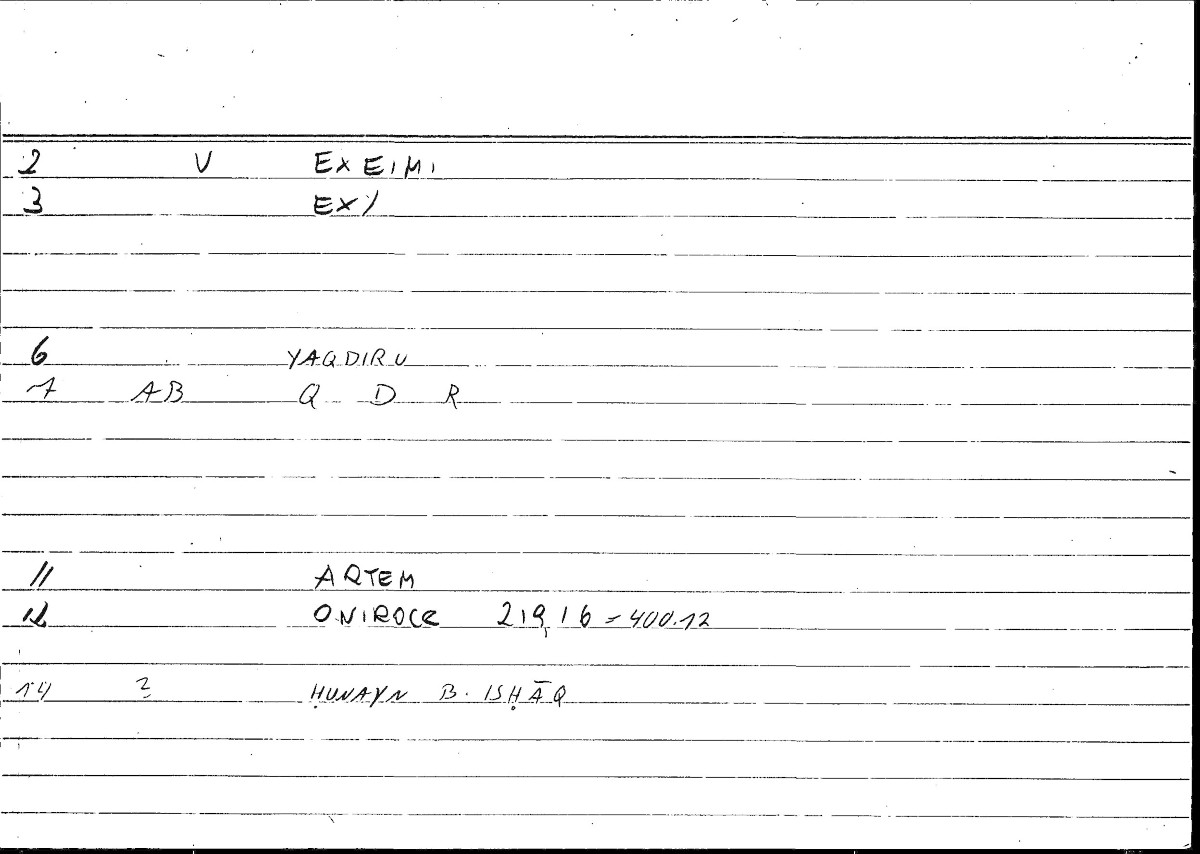 2 V EXEIMI
3 EX)
6 YAQDIRU
7 AB Q D R
11 ARTEM
12 ONIROCR 219,16 = 400.12
14 ? ḤUNAYN B. ISḤĀQ